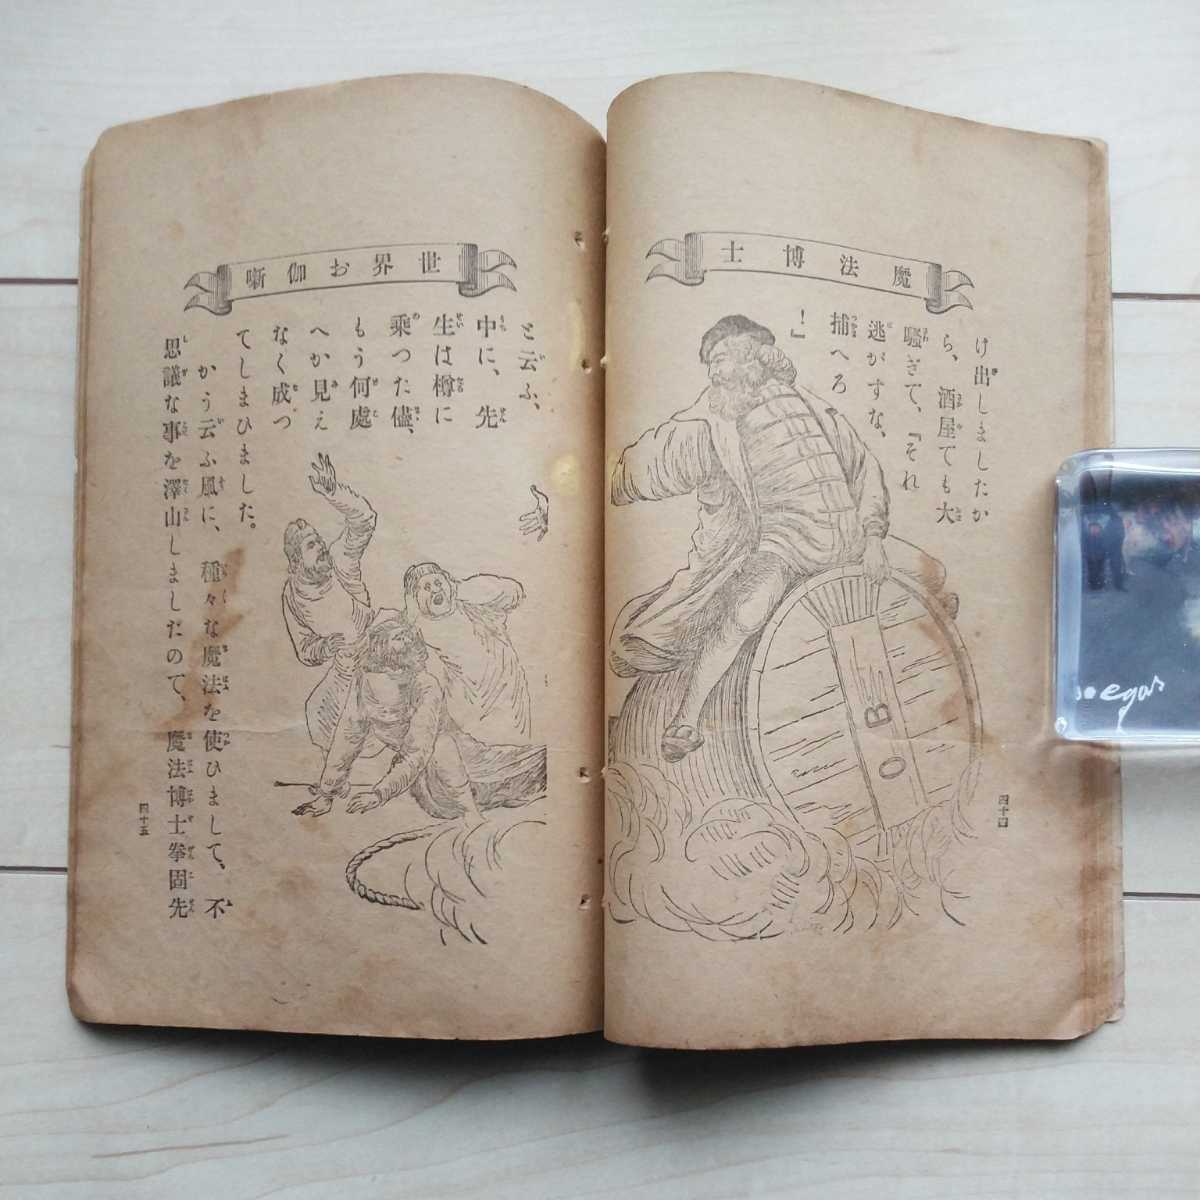 魔法博士
け出しましたか
ら、酒屋でも大
騒ぎて、『それ
逃がすな、
捕へろ
！』
OBO
四十四
世界お伽噺
と云ふ、
中に、先
生は樽に
乗つた儘、
もう何處
へか見え
なく成つ
てしまひました。
かう云ふ風に、種々な魔法を使ひまして、不
思議な事を澤山しましたので、魔法博士拳固先
四十五